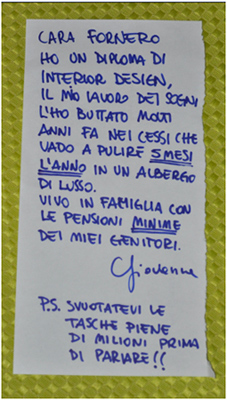 CARA FORNERO
HO UN DIPLOMA DI
INTERIOR DESIGN,
IL MIO LAVORO DEI SOGNI
L'HO BUTTATO MOLTI
ANNI FA NEI CESSI CHE
VADO A PULIRE 5 MESI
L'ANNO IN UN ALBERGO
DI LUSSO.
VIVO IN FAMIGLIA CON
LE PENSIONI MINIME
DEI MIEI GENITORI.
Giovanna
P.S. SVUOTATEVI LE
TASCHE PIENE
DI MILIONI PRIMA
DI PARLARE!!